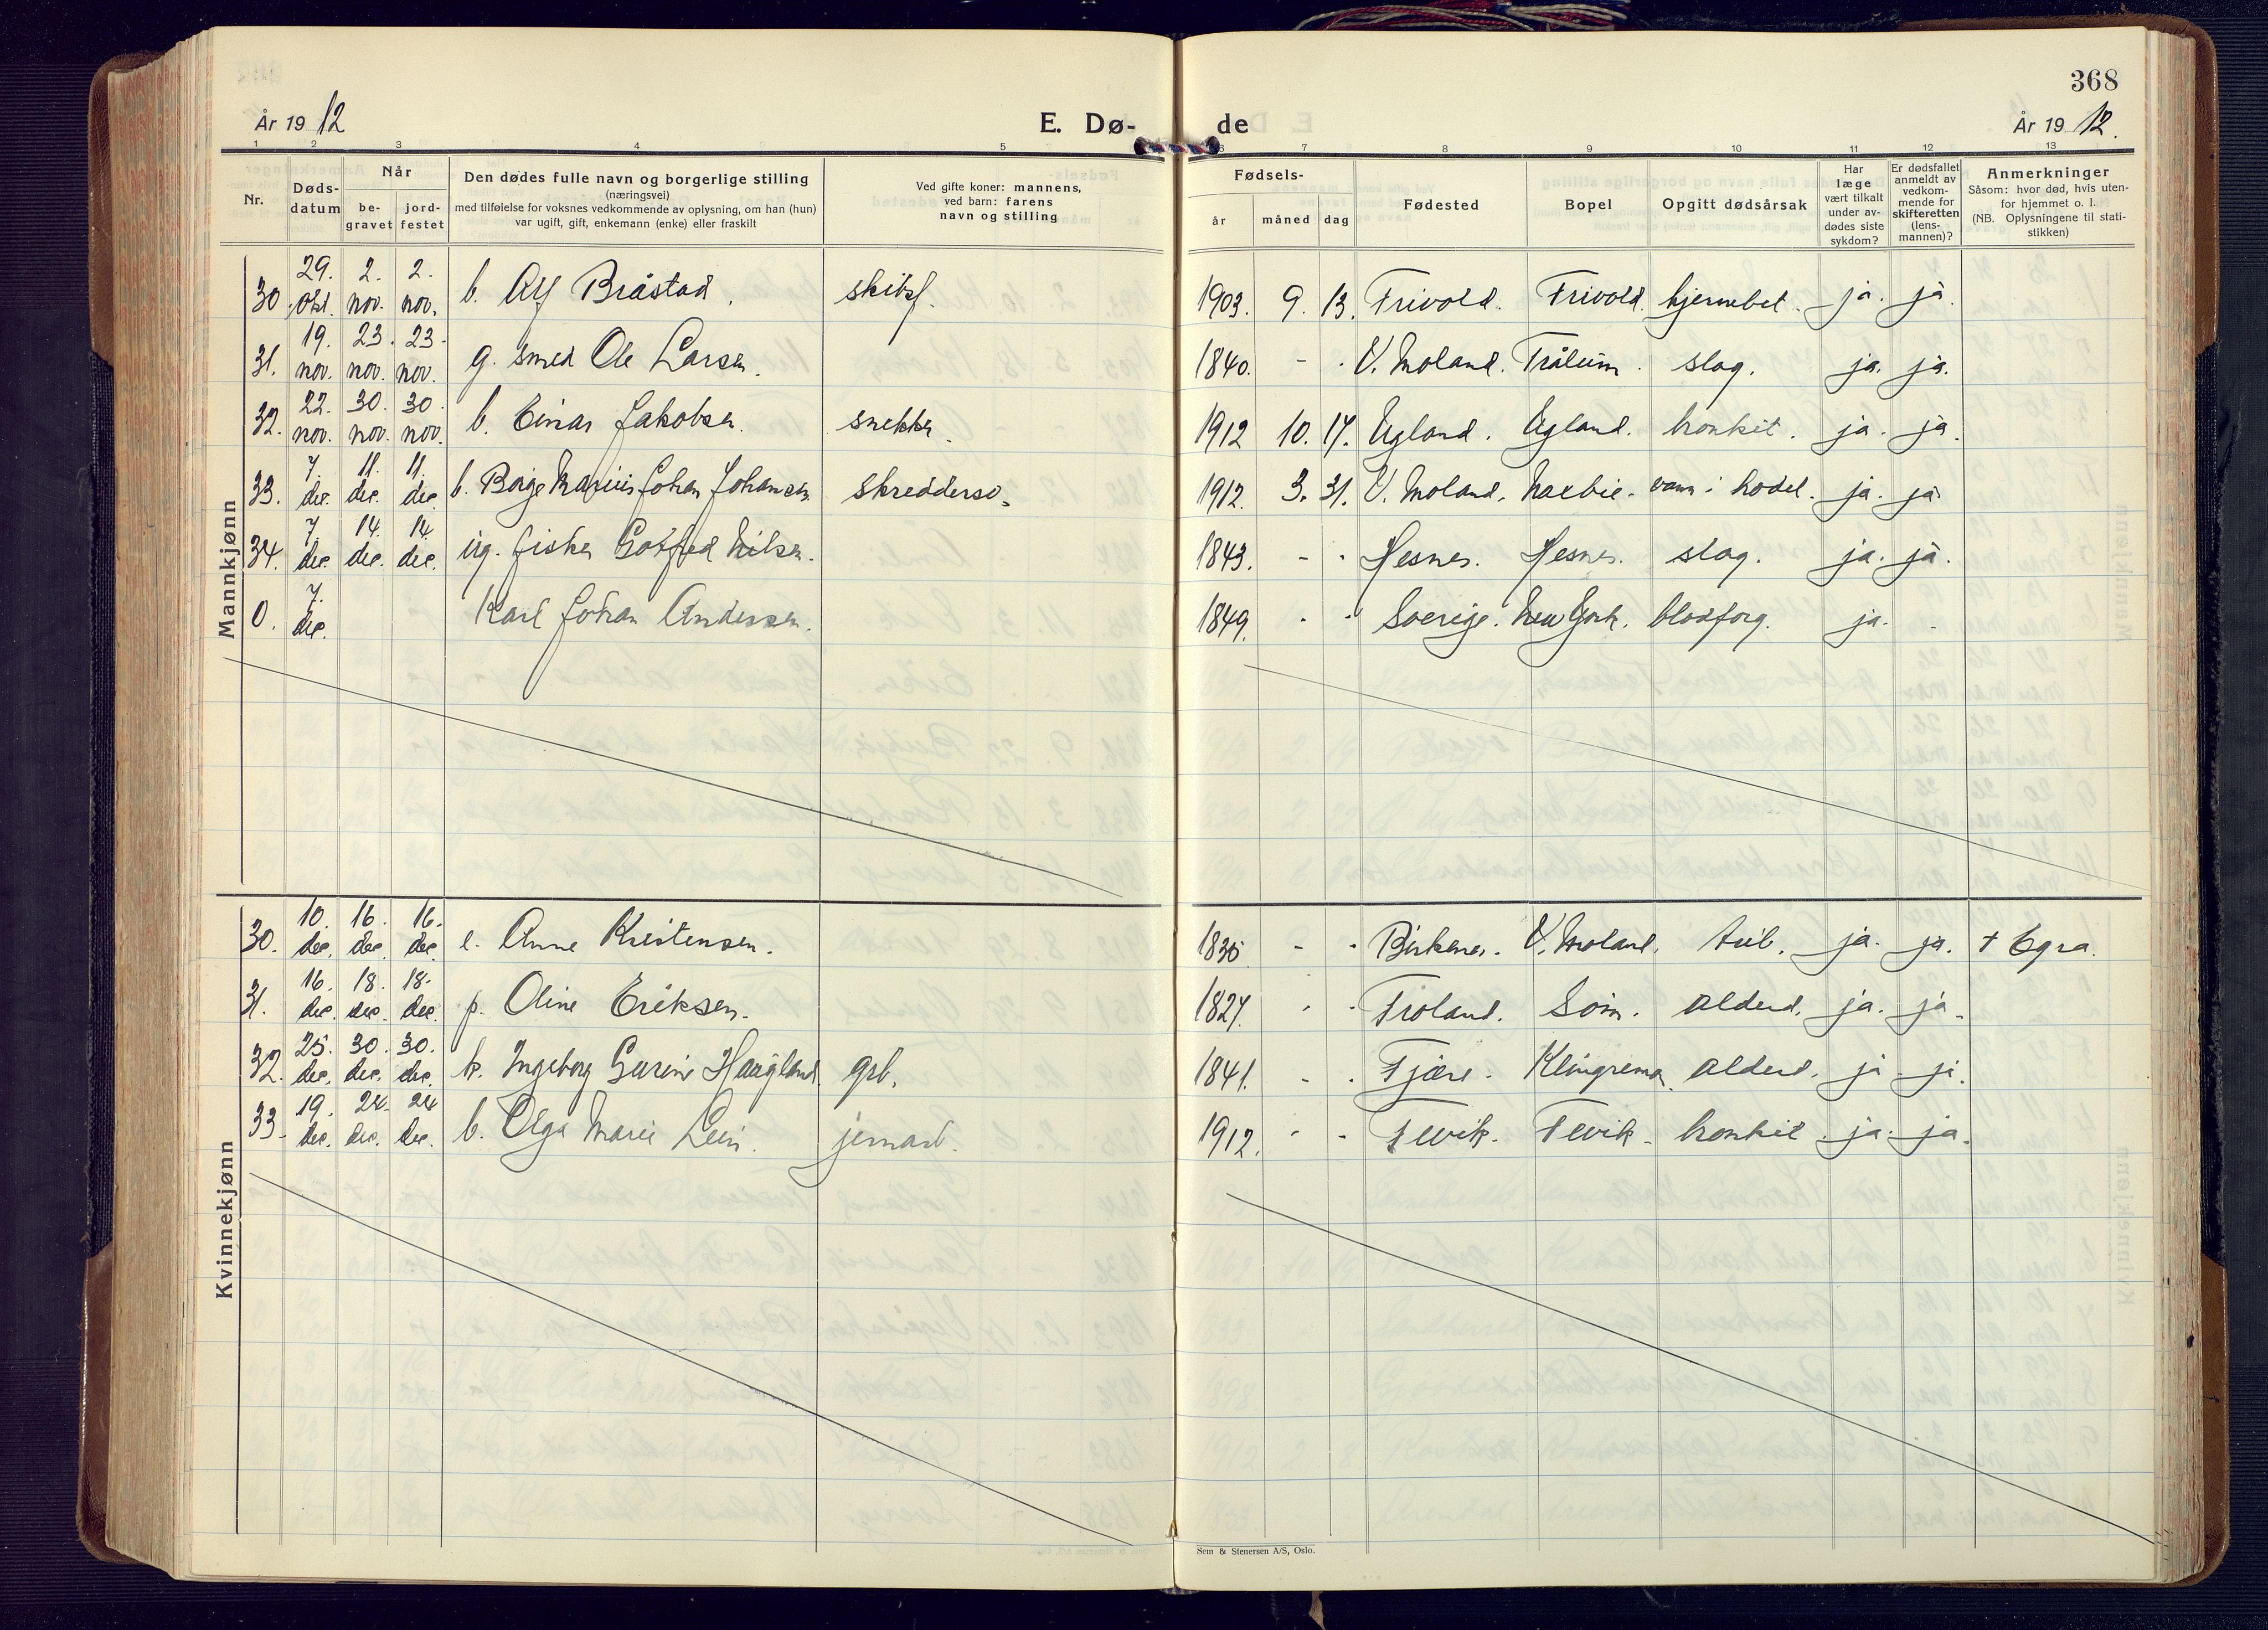 368
År 19 12
E. Dø-
de
År 19 12.
1 2 3 4 5 6 7 8 9 10 11 12 13
Nr.
Døds-
datum
Når
be-
gravet
jord-
festet
Den dødes fulle navn og borgerlige stilling
(næringsvei)
med tilføielse for voksnes vedkommende av oplysning, om han (hun)
var ugift, gift, enkemann (enke) eller fraskilt
Ved gifte koner: mannens,
ved barn: farens
navn og stilling
Fødsels-
år måned dag
Fødested
Bopel
Opgitt dødsårsak
Har
læge
vært tilkalt
under av-
dødes siste
sykdom?
Er dødsfallet
anmeldt av
vedkom-
mende for
skifteretten
(lens-
mannen)?
Anmerkninger
Såsom: hvor død, hvis uten-
for hjemmet o. l.
(NB. Oplysningene til stati-
stikken)
Mannkjønn
30 29. okt. 2. nov. 2. nov. b. Alf Bråstad. skibsf. 1903. 9. 13. Frivold. Frivold. hjernebet. ja. ja.
31. 19. nov. 23. nov. 23. nov. g. smed Ole Larsen. 1840. - . V. Moland. Trålum. slag. ja. ja.
32. 22. nov. 30. nov. 30. nov. b. Einar Jakobsen. snekker. 1912 10. 17. Ugland. Ugland. bronkit. ja. ja.
33. 7. dec. 11. dec. 11. dec. b. Børge Marius Johan Johansen skredderso. 1912. 3. 31. V. Moland. vann i hodet. ja. ja
34. 7. dec. 14. dec. 14. dec. ug. fisker Gotfred Nilsen. 1843. - . Hesnes. Hesnes. slag. ja. ja.
0. 7. dec. Karl Johan Andersen. 1849. . . Sverige. New York. blodforg. ja. -
Kvinnekjønn
30. 10. dec. 16. dec. 16. dec. e. Anne Kristensen. - . Birkenes. V. Moland. tub. ja. ja. + Egra.
31. 16. dec. 18. dec. 18. dec. p. Oline Eriksen. 1827. . . Froland. Søm. alderd. ja. ja.
32. 25. dec. 30. dec. 30. dec. k. Ingeborg Gurine Haugland. grb. 1841. - . Fjære. Klingremo. alderd. ja. ja.
33. 19. dec. 24. dec. 24 dec. b. Olga Marie jernarb. 1912. - - Fevik. Fevik. bronkit. ja. ja.
Sem & Stenersen A/S, Oslo.